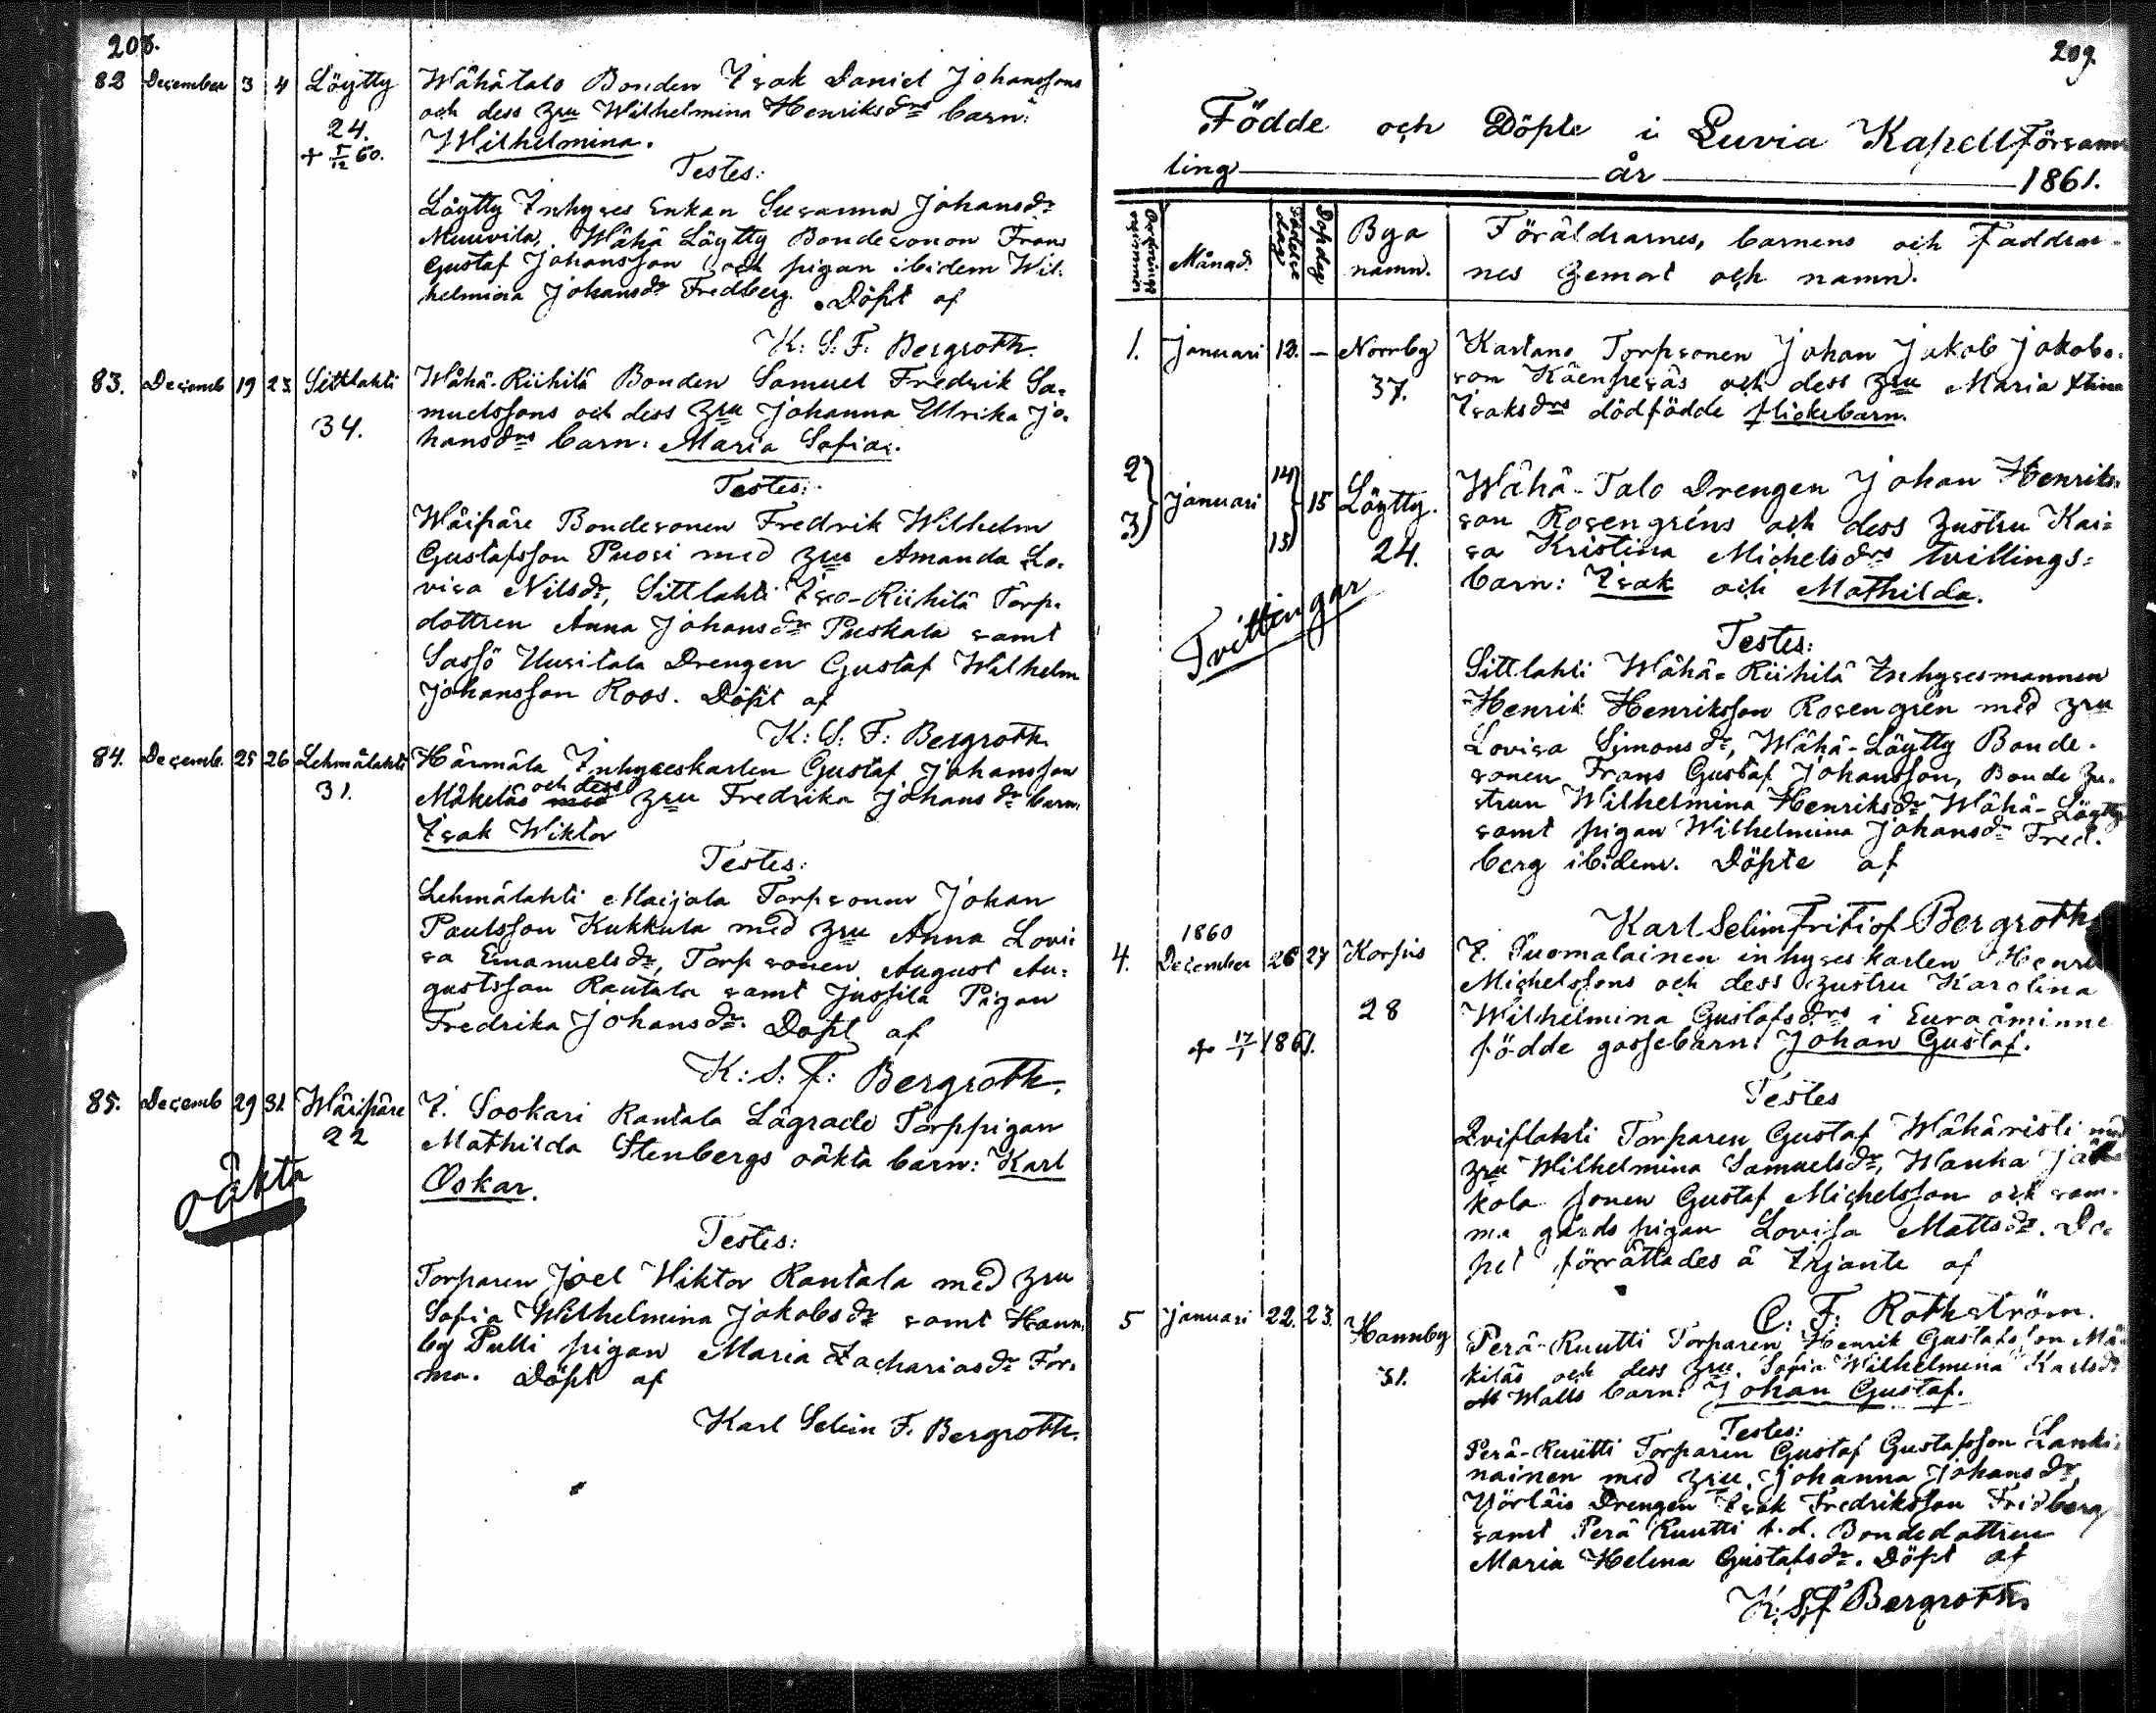 208.
82 December 3 4 Löytty Wähätalo Bonden Isak Daniel Johanssons
och dess hru Wilhelmina Henriksdrs barn:
24. Wilhelmina.
+ 5/12 60.
Testes:
Löytty Inhyses Enkan Susanna Johansdr
Muuvila, Wähä Löytty Bondesonon Frans
Gustaf Johansson och pigan ibidem Wil-
helmina Johansdr Fredberg. Döpt af
K: S: F: Bergroth.
83. Decemb 19 23 Sittlahti Wähä-Riihilä Bonden Samuel Fredrik Sa-
muelssons och dess hru Johanna Ulrika Jo-
34. hansdrs barn: Maria Sofia.
Testes:
Wäipäre Bondesonen Fredrik Wilhelm
Gustafsson Puosi med hru Amanda Lo-
visa Nilsdr, Sittlahti Iso-Riihilä Torp-
dottren Anna Johansdr Puskala samt
Sassö Uusitalo Drengen Gustaf Wilhelm
Johansson Roos. Döpt af
K: S: F: Bergroth.
84. Decemb. 25 26 Lehmälahti Härmälä Inhyseskarlen Gustaf Johansson
31. Mäkeläs med och dess hru Fredrika Johansdr barn:
Isak Wiktor
Testes:
Lehmälahti Maijala Torpsonen Johan
Paulsson Kukkula med hru Anna Lovi-
sa Emanuelsdr, Torpsonen August Au-
gustsson Rantala samt Jussila Pigan
Fredrika Johansdr. Döpt af
K: S: F: Bergroth.
85. Decemb 29 31 Wäripäre I. Sookari Rantala Lägrade Torppigan
22 Mathilda Stenbergs oäkta barn: Karl
oäkta Oskar.
Testes:
Torparen Joel Wiktor Rantala med hru
Sofia Wilhelmina Jakobsdr samt Hann-
by Pulli pigan Maria Zachariasdr For-
ma. Döpt af
Karl Selim F. Bergroth.
209.
Födde och Döpte i Luvia Kapellförsam-
ling år 1861.
Ordnings nummer Månad. Födelse dag Dopdag Bya namn. Föräldrarnes, barnens och Faddrar-
nes hemort och namn.
1. Januari 13. – Norrby Karlano Torpsonen Johan Jakob Jakobs-
37. son Käenpesäs och dess hru Maria Stina
Isaksdrs dödfödde flickebarn.
2 3 Januari 14 15 15 Löytty. Wähä-Talo Drengen Johan Henriks-
son Rosengréns och dess hustru Kai-
24. sa Kristina Michelsdrs tvillings-
barn: Isak och Mathilda.
Tvillingar
Testes:
Sittlahti Wähä-Riihilä Inhysesmannen
Henrik Henriksson Rosengrén med hru
Lovisa Simonsdr, Wähä-Löytty Bonde-
sonen Frans Gustaf Johansson, Bonde hu-
strun Wilhelmina Henriksdr Wähä-Löytty
samt pigan Wilhelmina Johansdr Fred-
berg ibidem. Döpte af
Karl Selim Fritiof Bergroth
1860
4. December 26 27 Korpis I. Suomalainen inhyseskarlen Henri
Michelssons och dess hustru Karolina
28 Wilhelmina Gustafsdrs i Euraåminne
+ 17/1 1861. födde gossebarn: Johan Gustaf.
Testes
Qviflahti Torparen Gustaf Wähäristi med
hru Wilhelmina Samuelsdr, Wanha Jaa
kola sonen Gustaf Michelsson och sam-
ma gårds pigan Lovisa Mattsdr. Do-
pet förrättades å Irjante af
C. F. Rothström.
5 Januari 22. 23. Hannby Perä-Ruutti Torparen Henrik Gustafsson Mä-
31. kiläs och dess hru Sofia Wilhelmina Karlsdr
Walls barn: Johan Gustaf.
Testes:
Perä-Ruutti Torparen Gustaf Gustafsson Lanki-
nainen med hru Johanna Johansdr,
Yörläis Drengen Isak Fredriksson Fridberg
samt Perä Ruutti t.d. Bondedottren
Maria Helena Gustafsdr. Döpt af
K: S: F Bergroth.